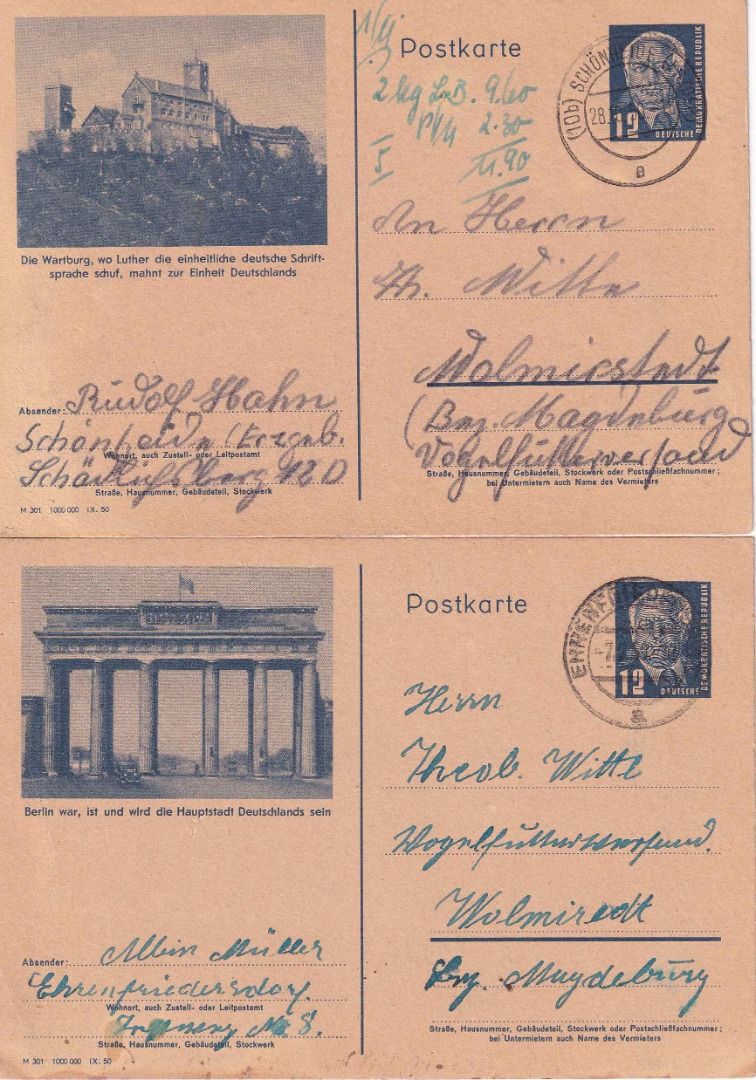 Postkarte
2 kg L.B. 9/60
P/N 2.30
5 11.90
(10b) SCHÖNHEIDE
28.
a
12
DEUTSCHE
DEMOKRATISCHE REPUBLIK
Die Wartburg, wo Luther die einheitliche deutsche Schrift-
sprache schuf, mahnt zur Einheit Deutschlands
An Herrn
Th. Witte
Wolmirstedt
(Bez. Magdeburg
Vogelfutterversand
Straße, Hausnummer, Gebäudeteil, Stockwerk oder Postschließfachnummer;
bei Untermietern auch Name des Vermieters
Absender: Rudolf Hahn
Schönheide (Erzgeb.
Wohnort, auch Zustell- oder Leitpostamt
Schädlichsberg 12 D
Straße, Hausnummer, Gebäudeteil, Stockwerk
M 301 1000 000 IX. 50
Postkarte
a
12
DEUTSCHE
DEMOKRATISCHE REPUBLIK
Berlin war, ist und wird die Hauptstadt Deutschlands sein
Herrn
Theob. Witte
Vogelfutterversand.
Wolmiredt
Bez. Magdeburg
Straße, Hausnummer, Gebäudeteil, Stockwerk oder Postschließfachnummer;
bei Untermietern auch Name des Vermieters
Absender: Albin Müller
Ehrenfriedersdorf
Wohnort, auch Zustell- oder Leitpostamt
No 8.
Straße, Hausnummer, Gebäudeteil, Stockwerk
M 301 1000 000 IX. 50